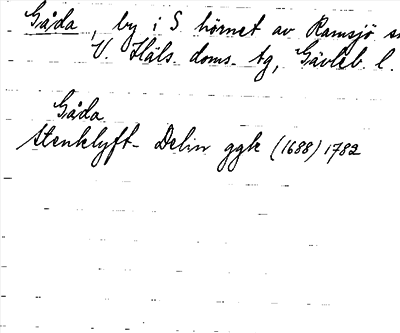 Gåda, by i S hörnet av Ramsjö
V. Häls. doms. tg, Gävleb. l.
Gåda
Stenklyft- Delin ggk (1688) 1782